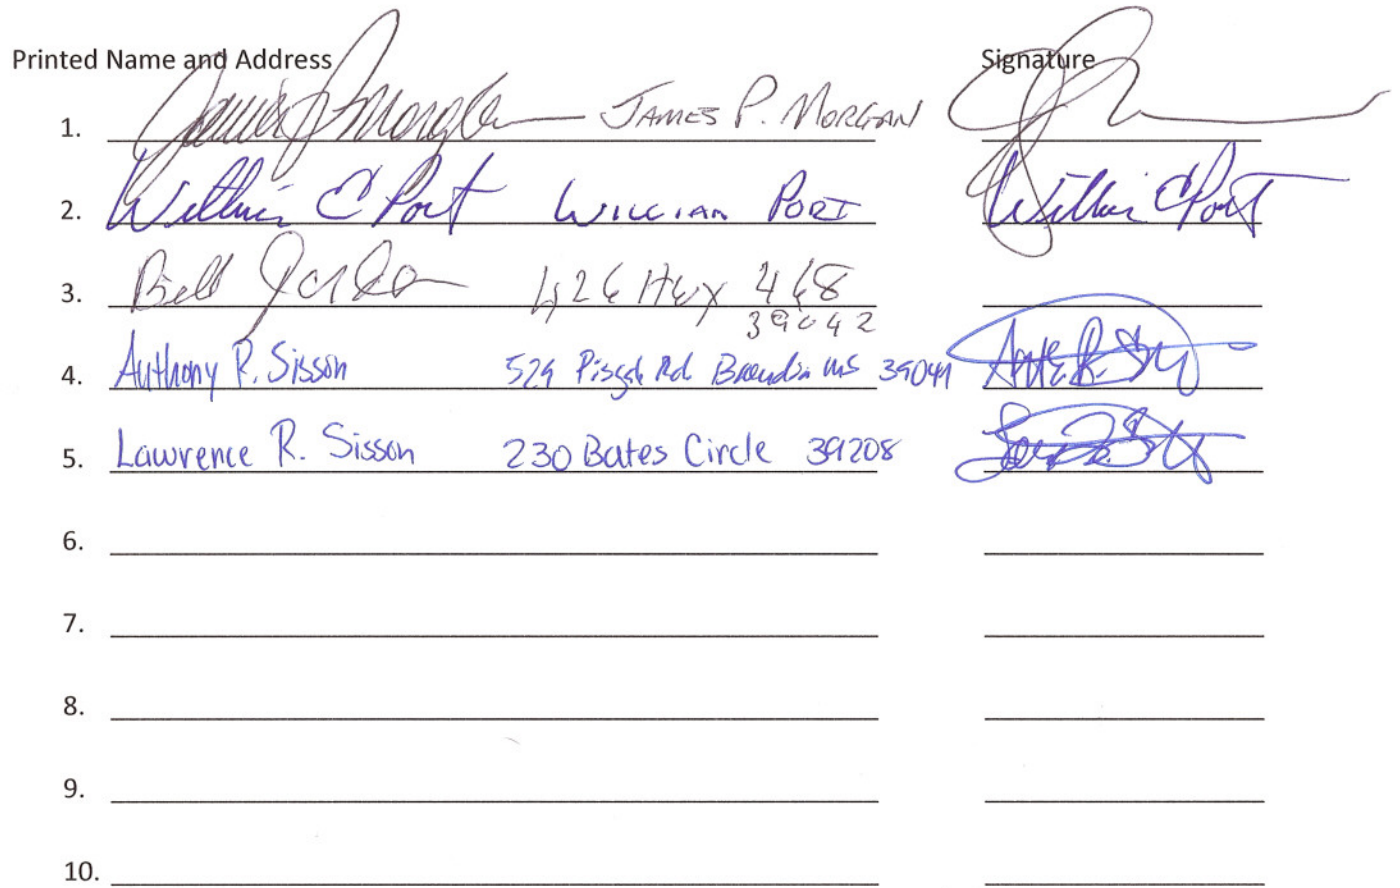 Printed Name and Address Signature
1. James P Morgan JAMES P. MORGAN
2. William C Port WILLIAM PORT William C Port
3. Bill 426 Hwy 468
39042
4. Anthony R. Sisson 529 Pisgah Rd Brandon MS 39047
5. Lawrence R. Sisson 230 Bates Circle 39208
6.
7.
8.
9.
10.